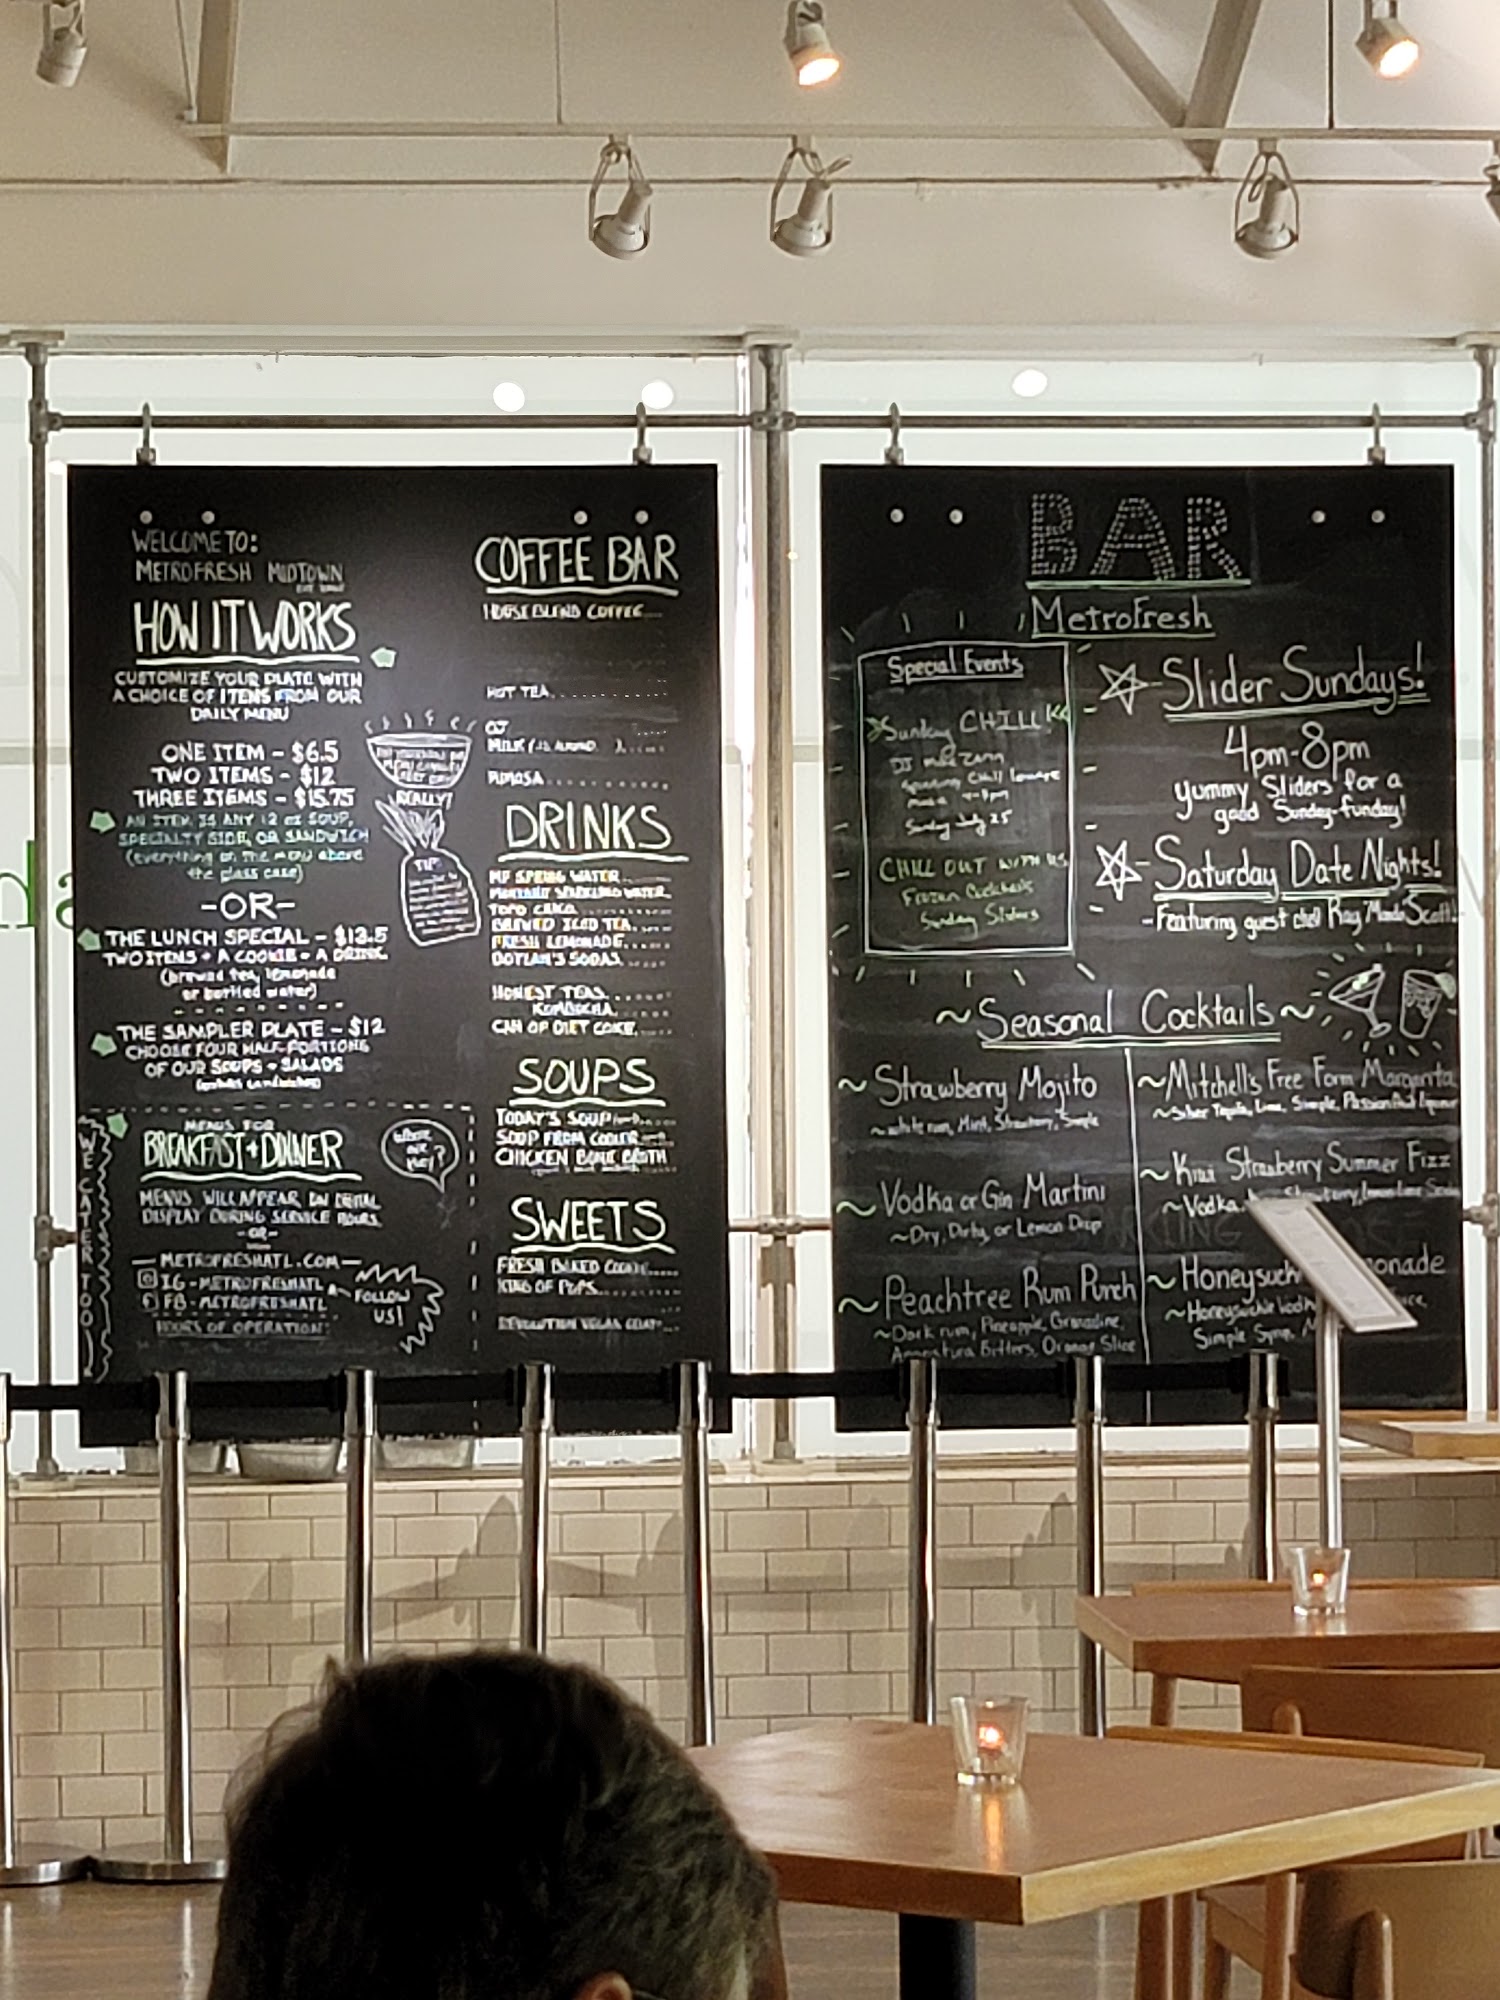 WELCOME TO:
METROFRESH MIDTOWN
HOW IT WORKS
CUSTOMIZE YOUR PLATE WITH
A CHOICE OF ITEMS FROM OUR
DAILY MENU
ONE ITEM - $6.5
TWO ITEMS - $12
THREE ITEMS - $15.75
AN ITEM IS ANY 12 oz SOUP,
SPECIALTY SIDE, OR SANDWICH
(everything on the menu above
the glass case)
-OR-
THE LUNCH SPECIAL - $13.5
TWO ITEMS + A COOKIE + A DRINK
(brewed tea, lemonade
or bottled water)
THE SAMPLER PLATE - $12
CHOOSE FOUR HALF-PORTIONS
OF OUR SOUPS + SALADS
REALLY!
TIP:
MENUS FOR
BREAKFAST + DINNER
MENUS WILL APPEAR ON DIGITAL
DISPLAY DURING SERVICE HOURS
-OR-
METROFRESHATL.COM
IG - METROFRESHATL
FB - METROFRESHATL
HOURS OF OPERATION:
FOLLOW
US!
WE CATER TOO!
COFFEE BAR
HOUSE BLEND COFFEE....
HOT TEA..........
OJ
MILK
MIMOSA..........
DRINKS
MF SPRING WATER
MOUNTAIN SPARKLING WATER
TOPO CHICO
BREWED ICED TEA
FRESH LEMONADE
BOYLAN'S SODAS
HONEST TEAS
KOMBUCHA
CAN OF DIET COKE
SOUPS
TODAY'S SOUP
SOUP FROM COOLER
CHICKEN BONE BROTH
SWEETS
FRESH BAKED COOKIE
KING OF POPS
REVOLUTION GELATO
BAR
MetroFresh
Special Events
Sunday CHILL
DJ
Sunday July 25
CHILL OUT WITH US
Frozen Cocktails
Sunday Sliders
Slider Sundays!
4pm-8pm
Yummy Sliders for a
good Sunday-funday!
Saturday Date Nights!
-Featuring guest chef Ray Scott!
~Seasonal Cocktails~
~Strawberry Mojito
~white rum, Mint, Strawberry, Simple
~Vodka or Gin Martini
~Dry, Dirty, or Lemon Drop
~Peachtree Rum Punch
~Dark rum, Pineapple, Grenadine,
Angostura Bitters, Orange Slice
~Mitchell's Free Form Margarita
~Silver Tequila, Lime, Simple, Passion fruit liqueur
~Kiwi Strawberry Summer Fizz
~Vodka, Strawberry, lemon Lime Soda
~Honeysuck onade
~Honeysuckle Vodka
Simple Syrup